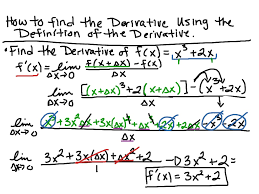 How to find the Derivative Using the
Definition of the Derivative.
• Find the Derivative of f(x) = x³ + 2x.
f'(x) = lim Δx→0 f(x+Δx) - f(x) / Δx
lim Δx→0 [(x+Δx)³ + 2(x+Δx)] - (x³ + 2x) / Δx
lim Δx→0 x³ + 3x²Δx + 3x(Δx)² + Δx³ + 2x + 2Δx - x³ - 2x / Δx
lim Δx→0 3x² + 3x(Δx) + Δx² + 2 / 1 → 3x² + 2 =
f'(x) = 3x² + 2